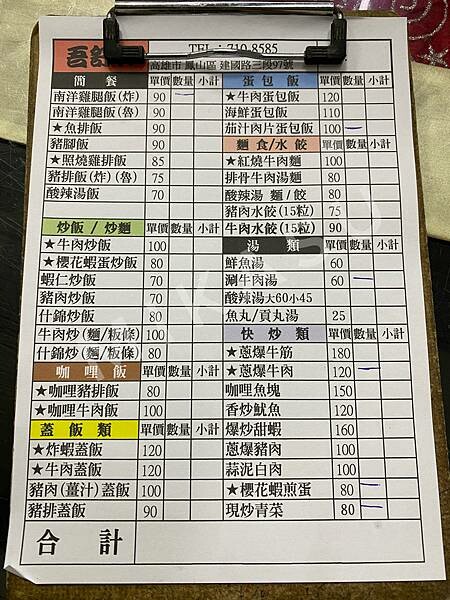 吾
TEL：710-8585
高雄市 鳳山區 建國路三段97號
簡 餐 單價 數量 小計
南洋雞腿飯(炸) 90
南洋雞腿飯(魯) 90
★魚排飯 90
豬腳飯 90
★照燒雞排飯 85
豬排飯(炸)(魯) 75
酸辣湯飯 70
炒飯 / 炒麵 單價 數量 小計
★牛肉炒飯 100
★櫻花蝦蛋炒飯 80
蝦仁炒飯 80
豬肉炒飯 80
什錦炒飯 80
牛肉炒(麵/粄條) 100
什錦炒(麵/粄條) 80
咖 哩 飯 單價 數量 小計
★咖哩豬排飯 80
★咖哩牛肉飯 100
蓋 飯 類 單價 數量 小計
★炸蝦蓋飯 120
★牛肉蓋飯 120
豬肉(薑汁)蓋飯 100
豬排蓋飯 90
蛋 包 飯 單價 數量 小計
★牛肉蛋包飯 120
海鮮蛋包飯 110
茄汁肉片蛋包飯 100
麵 食/水 餃 單價 數量 小計
★紅燒牛肉麵 100
排骨牛肉湯麵 80
酸辣湯 麵 / 餃 80
豬肉水餃(15粒) 75
牛肉水餃(15粒) 90
湯 類 單價 數量 小計
鮮魚湯 60
涮牛肉湯 60
酸辣湯大60小45
魚丸/貢丸湯 25
快 炒 類 單價 數量 小計
★蔥爆牛筋 180
★蔥爆牛肉 120
咖哩魚塊 150
香炒魷魚 120
爆炒甜蝦 160
蔥爆豬肉 100
蒜泥白肉 100
★櫻花蝦煎蛋 80
現炒青菜 80
合 計